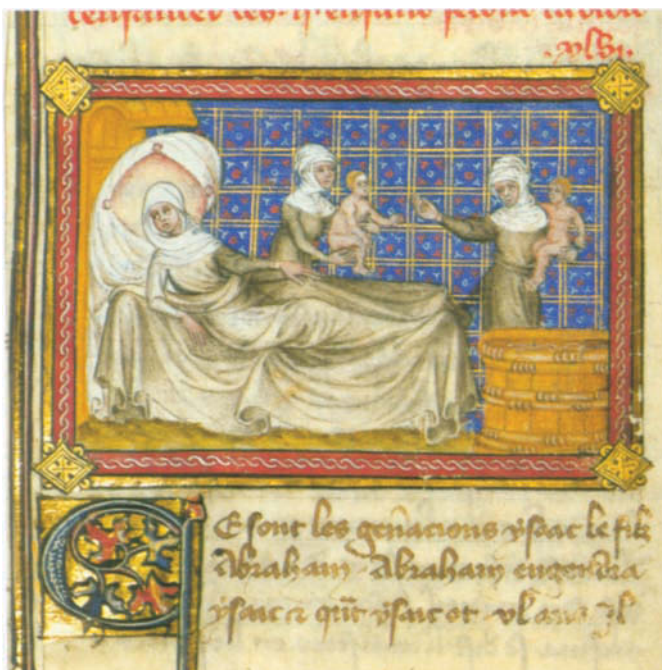 enfans
.xlvi.
CE sont les gen̄acions ysaac le filz
Abraham . Abraham engendra
ysaac & qūt ysaac ot .xl. ans . Il